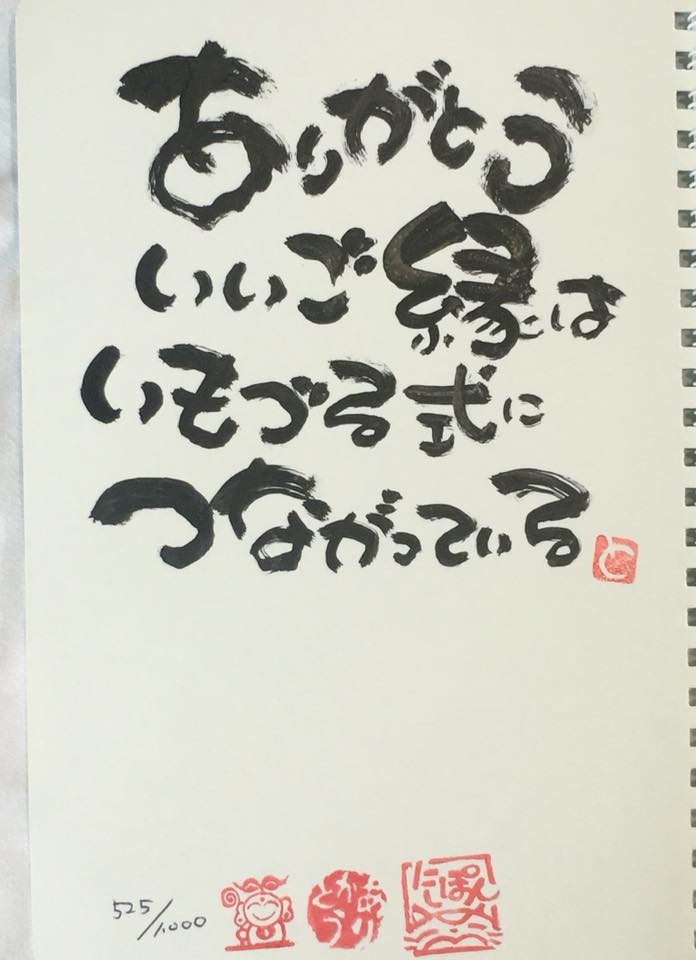 ありがとう
いいご縁は
いもづる式に
つながっている
と
525/1,000
にしぽん